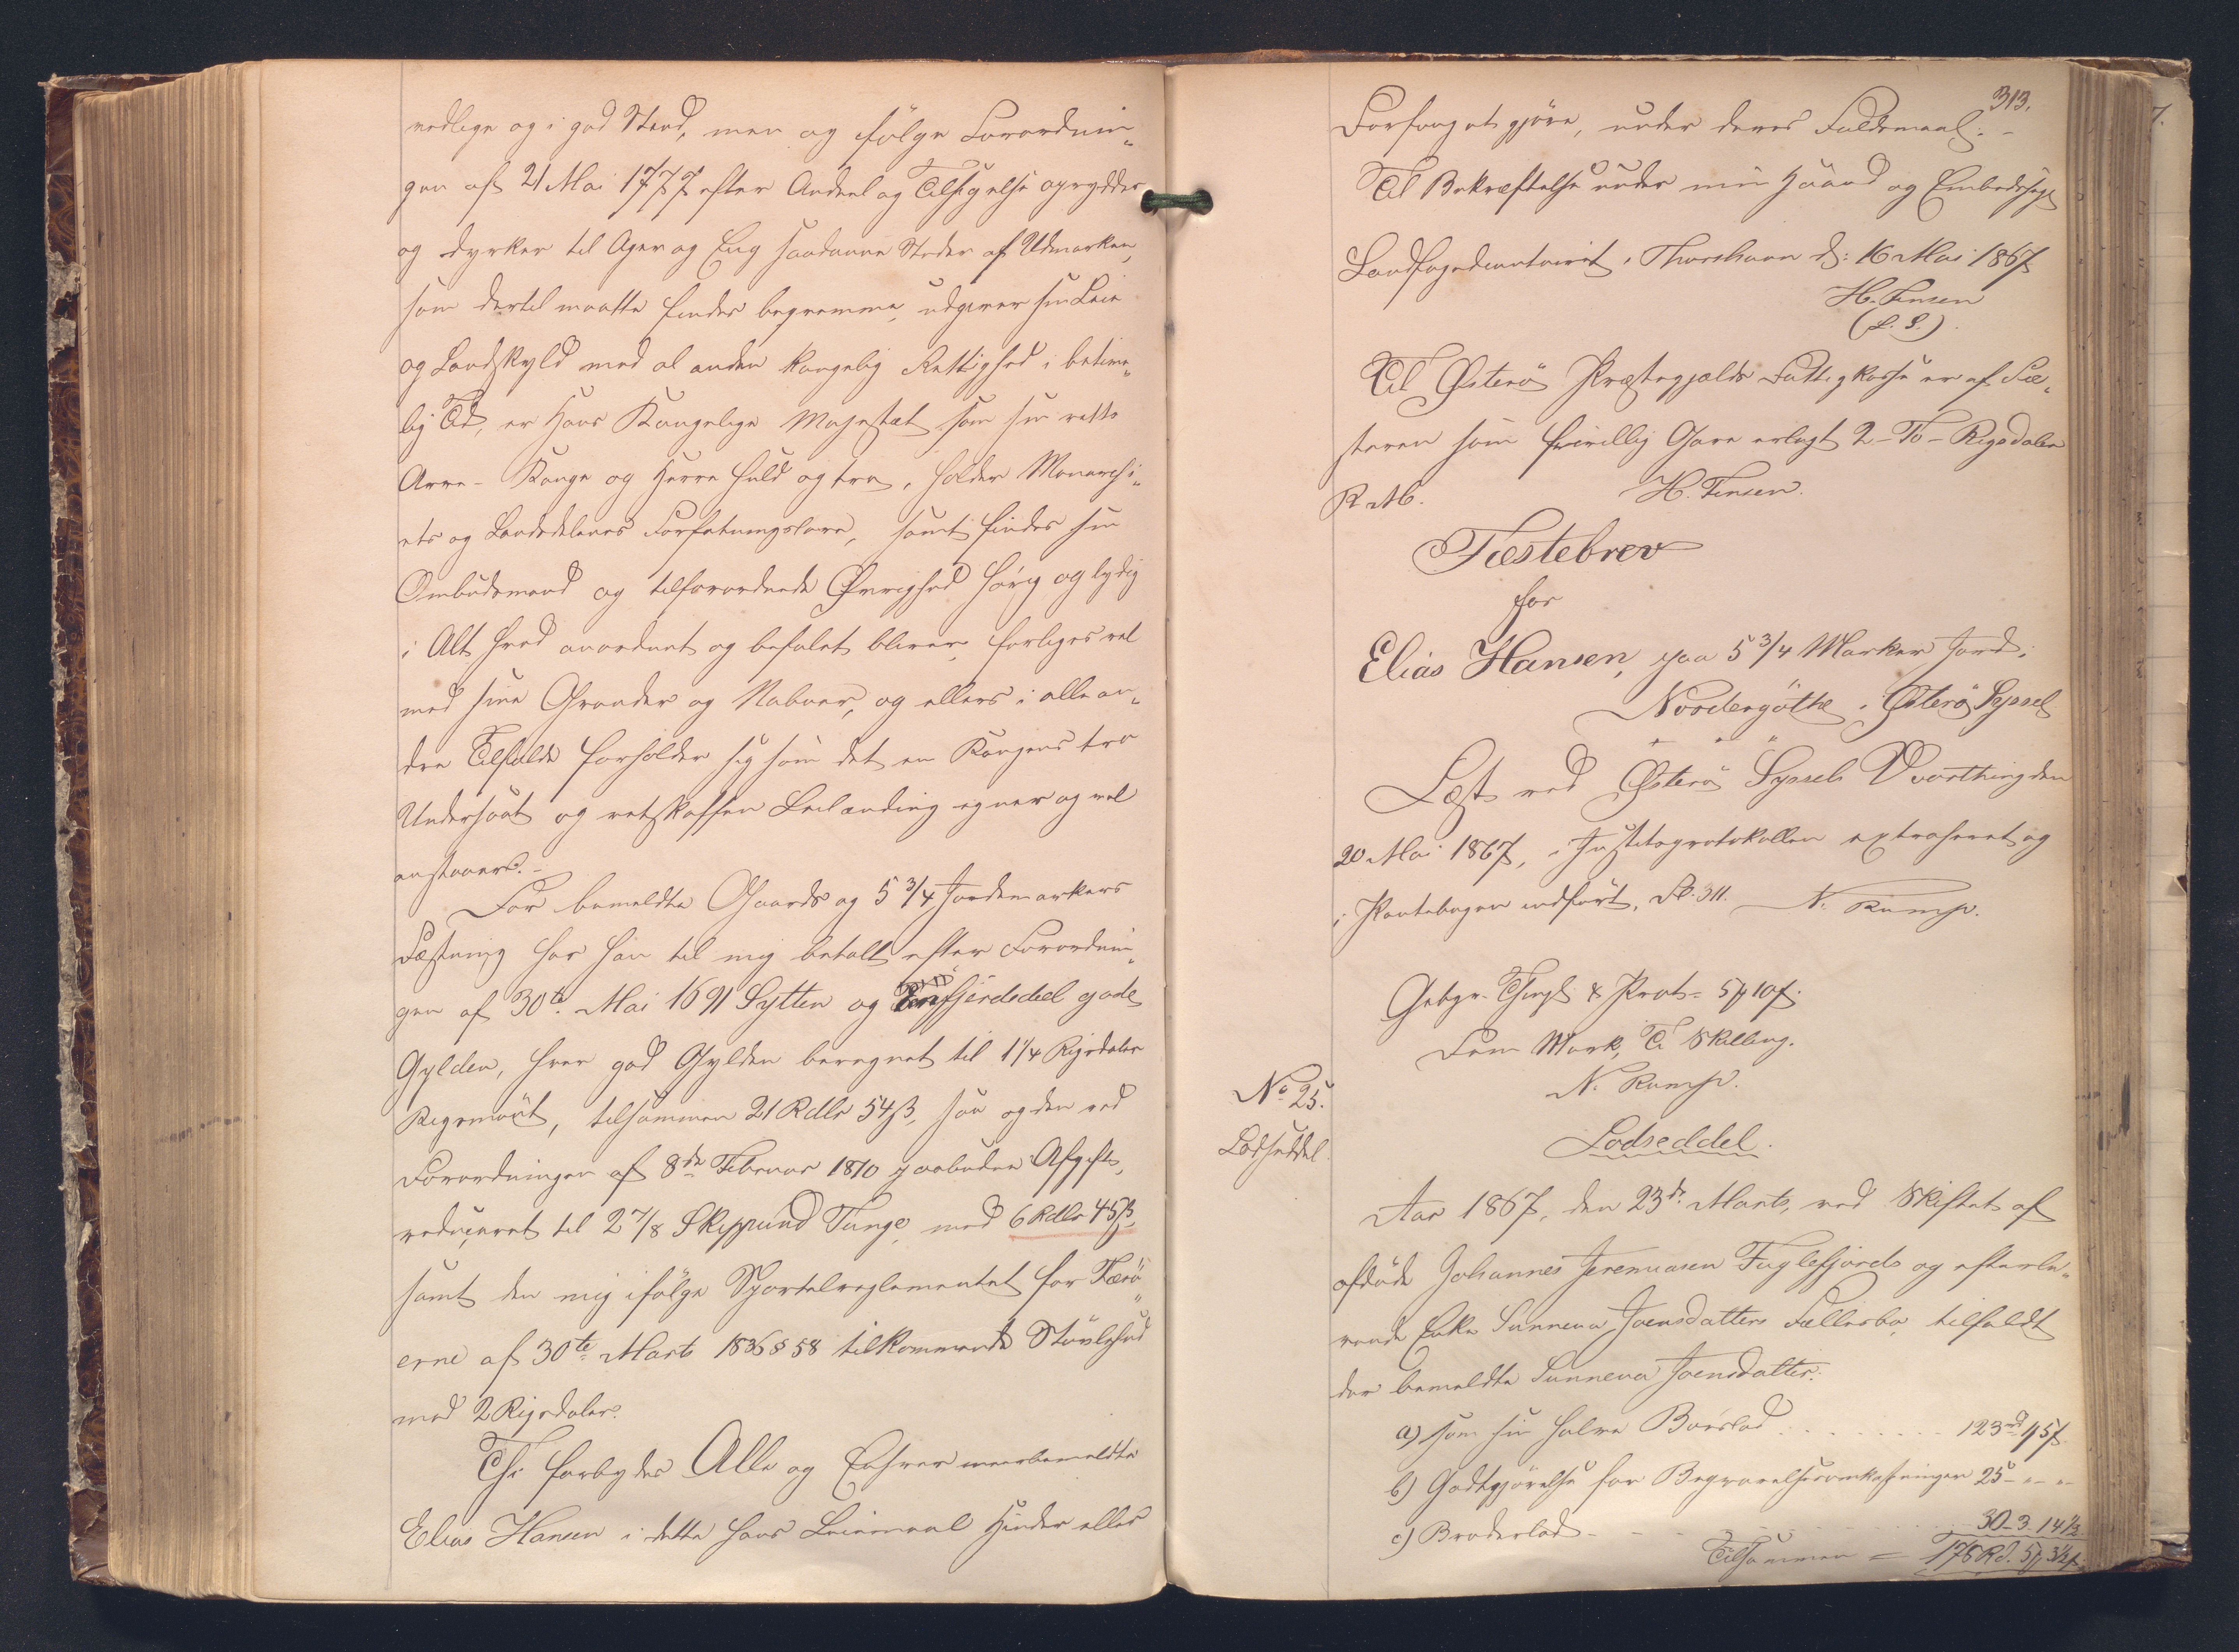 vedlige og i god Stand, men og følge Forordnin„
gen af 21 Mai 1777 efter Andeel og Tilsigelse oprydder
og dyrker til Ager og Eng saadanne Steder af Udmarken,
som dertil maatte findes beqvemme, udgiver sin Leie
og Landskyld med al anden kongelig Rettighed i betime„
lig Tid, er Hans Kongelige Majestæt som sin rette
Arve- Konge og Herre huld og tro, holder Monarchi„
ets og Landsdelenes Forfatningslove, samt findes sin
Ombudsmand og tilforordnede Øvrighed hørig og lydig
i Alt hvad anordnet og befalet bliver, forliges vel
med sine Grander og Naboer, og ellers i alle an„
dre Tilfælde forholder sig som det en Kongens tro
Undersaat og retskaffen Leilænding egner og vel
anstaaer. -
For bemeldte Gaards og 5 3/4 Jordemarkers
Fæstning har han til mig betalt efter Forordnin„
gen af 30te Mai 1691 Sytten og En fjerdedeel gode
Gylden, hver god Gylden beregnet til 1 1/4 Rigsdaler
Rigsmønt, tilsammen 21 Rdlr 54 ß, saa og den ved
Forordningen af 8de Februar 1810 paabudne Afgift,
reduceret til 2 7/8 Skippund Tunge, med 6 Rdlr 45 ß,
samt den mig ifølge Sportelreglementet for Færø„
erne af 30te Marts 1836 § 58 tilkommende Støvlehud
med 2 Rigsdaler.
Thi forbydes Alle og Enhver meerbemeldte
Elias Hansen i dette hans Leiemaal Hinder eller
313.
Forfang at gjøre, under deres Faldsmaal. -
Til Bekræftelse under min Haand og Embedssegl
Landfogedcontoiret i Thorshavn d: 16 Mai 1867
H. Finsen
(L. S.)
Til Østerø Præstegjælds Fattigkasse er af Fæ„
steren som frivillig Gave erlagt 2 - To - Rigsdaler
R. M. H. Finsen.
Fæstebrev
for
Elias Hansen, paa 5 3/4 Marker Jord i
Nordergøthe i Østerø Syssel
Læst ved Østerø Syssels Vaarthing den
20 Mai 1867, i Justitsprotokollen extraheret og
i Pantebogen indført, Fol: 311. N. Rump.
Gebyr. Thingl. & Prot = 5 ₻ 10 ß.
Fem Mark, Ti Skilling.
N. Rump.
No 25.
Lodseddel.
Lodseddel.
Aar 1867, den 23de Marts, ved Skiftet af
afdøde Johannes Jeremiasen Fuglefjords og efterle„
vende Enke Sunneva Joensdatters Fællesbo, tilfaldt
der bemeldte Sunneva Joensdatter:
a) som sin halve Boeslod . . . . . . . . 123 rd 1 ₻ 5 ß
b) Godtgjørelse for Begravelsesomkostninger 25 - „ - „ -
c) Broderlod - - - - - 30 - 3 - 14 1/2
Tilsammen = 178 Rd. 5 ₻ 3 1/2 ß.